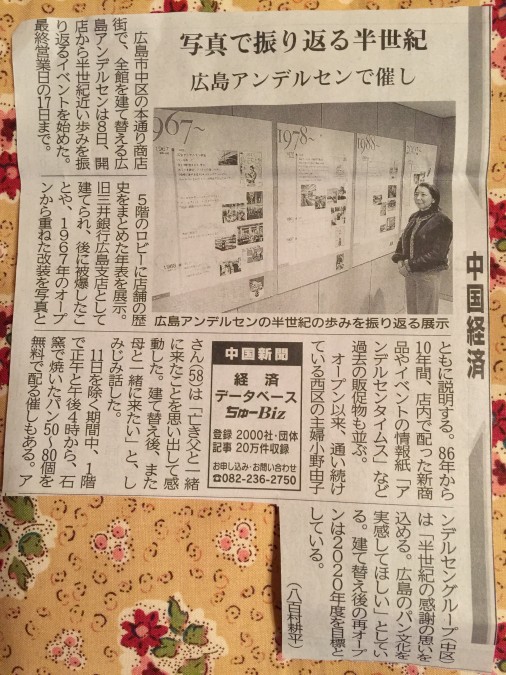 写真で振り返る半世紀
広島アンデルセンで催し
広島市中区の本通り商店
街で、全館を建て替える広
島アンデルセンは8日、開
店から半世紀近い歩みを振
り返るイベントを始めた。
最終営業日の17日まで。
5階のロビーに店舗の歴
史をまとめた年表を展示。
旧三井銀行広島支店として
建てられ、後に被爆したこ
とや、1967年のオープ
ンから重ねた改装を写真と
967〜
1978〜
1988〜
広島アンデルセンの半世紀の歩みを振り返る展示
中国経済
ともに説明する。86年から
10年間、店内で配った新商
品やイベントの情報紙「ア
ンデルセンタイムス」など
過去の販促物も並ぶ。
オープン以来、通い続け
ている西区の主婦小野由子
さん(58)は「亡き父と一緒
に来たことを思い出して感
動した。建て替え後、また
母と一緒に来たい」と、し
みじみ話した。
11日を除く期間中、1階
で正午と午後4時から、石
窯で焼いたパン50〜80個を
無料で配る催しもある。ア
ンデルセングループ(中区)
は「半世紀の感謝の思いを
込める。広島のパン文化を
実感してほしい」としてい
る。建て替え後の再オープ
ンは2020年度を目標と
している。
(八百村耕平)
中国新聞
経済
データベース
ちゅーBiz
登録 2000社・団体
記事 20万件収録
お申し込み・お問い合わせ
☎082-236-2750